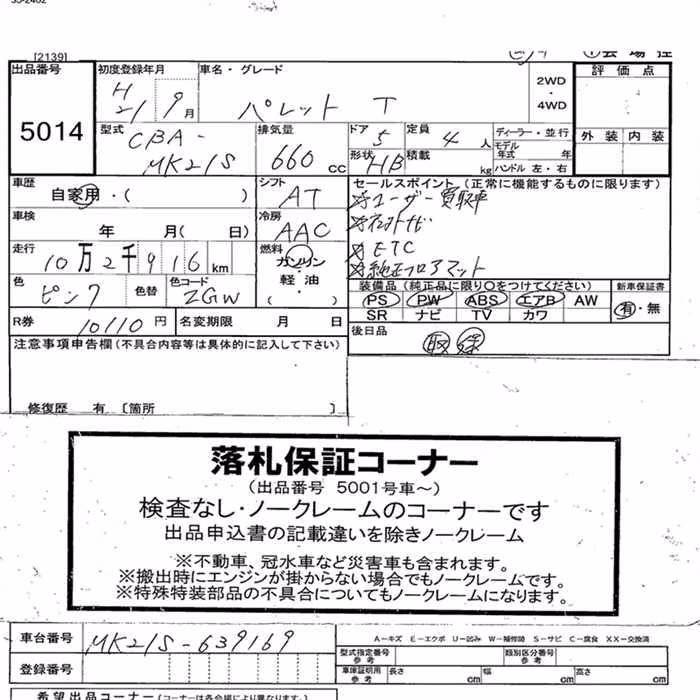 [2139]
出品番号 初度登録年月 車名・グレード 2WD・4WD 評価点
5014 H21 9月 パレット T
型式 CBA-MK21S 排気量 660cc ドア 5 定員 4人 ディーラー・並行 外装 内装
形状 HB 積載 kg モデル年式 年 ハンドル 左・右
車歴 自家用・( ) シフト AT セールスポイント (正常に機能するものに限ります)
ユーザー買取車
車検 年 月( 日) 冷房 AAC
ETC
走行 10万2千916km 燃料 ガソリン 軽油・( )
純正フロアマット
色 ピンク 色替 色コード ZGW
装備品 (純正品に限り〇をつけてください) 新車保証書
PS PW ABS エアB AW 有・無
SR ナビ TV カワ
R券 10110円 名変期限 月 日
後日品 取 録
注意事項申告欄(不具合内容等は具体的に記入して下さい)
修復歴 有 〔箇所 〕
落札保証コーナー
(出品番号 5001号車~)
検査なし・ノークレームのコーナーです
出品申込書の記載違いを除きノークレーム
※不動車、冠水車など災害車も含まれます。
※搬出時にエンジンが掛からない場合でもノークレームです。
※特殊特装部品の不具合についてもノークレームになります。
車台番号 MK21S-639169
A-キズ E-エクボ U-凹み W-補修跡 S-サビ C-腐食 XX-交換済
型式指定番号 参考 類別区分番号 参考
登録番号 車庫証明用 参考 長さ cm 幅 cm 高さ cm
希望出品コーナー(コーナーは各会場により異なります。)